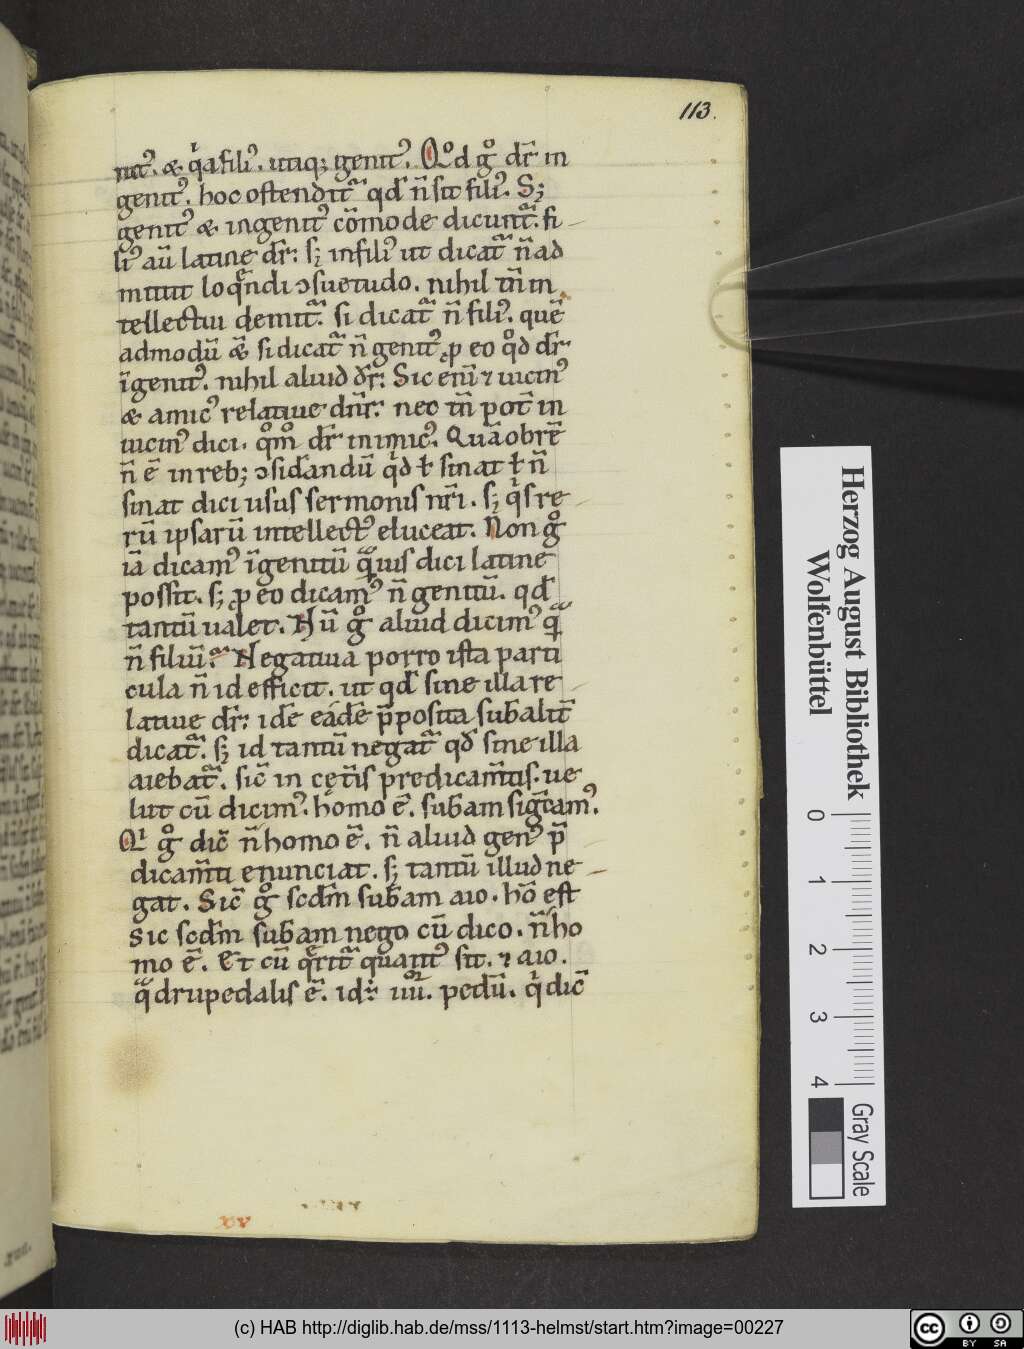 113.
nit᷒. & qͥa filiꝰ. utiq; genitꝰ. Qᵒd gͦ dr̄ in
genitꝰ. hoc ostendit᷑ qd̄ n̄ sit filiꝰ. S;
genitꝰ & ingenitꝰ cōmode dicunt᷑. fi
liꝰ aū latine dr̄: s; infiliꝰ ut dicat᷑ n̄ ad
mittit loq̄ndi ɔsuetudo. nihil tn̄ in
tellectui demit᷑. si dicat᷑ n̄ filiꝰ. quē
admodū &̄ si dicat᷑ n̄ genitꝰ ꝓ eo qͦd dr̄
īgenitꝰ. nihil aliud dr̄: Sic enī ⁊ uicinꝰ
& amicꝰ relatiue dn̄r: nec tn̄ potē in
uicinꝰ dici. qͦmͦ dr̄ inimicꝰ. Quā obrē
n̄ ē in reb; ɔsid̄andū qͥd ł sinat ł n̄
sinat dici usus sermonis nr̄i. s; qͥs re
rū ipsarū intellectꝰ eluceat. Non gͦ
iā dicamꝰ īgenitū qᷓuis dici latine
possit. s; ꝓ eo dicamꝰ n̄ genitū. qd̄
tantū ualet. Nū gͦ aliud dicimꝰ qᷓ
n̄ filiū: Negatiua porro ista parti
cula n̄ id efficit. ut qd̄ sine illa re
latiue dr̄: id̄e ead̄e p̄posita subalit̄
dicat᷑. s; id tantū negat᷑ qd̄ sine illa
aiebat᷑. sic̄ in cęt̄is predicam̄tis. ue
lut cū dicimꝰ. homo ē. subam sigc̄amꝰ.
Qͥ gͦ dic̄ n̄ homo ē. n̄ aliud genꝰ p̄
dicam̄ti enunciat. s; tantū illud ne
gat. Sic̄ gͦ scd̄m subam aio. hō est
sic scd̄m subam nego cū dico. n̄ ho
mo ē. Et cū q̄rit᷑ quantꝰ sit. ⁊ aio.
qᷓdrupedalis ē. id: iiiiͦr. pedū. qͥ dic̄
xv
Herzog August Bibliothek
Wolfenbüttel
0 1 2 3 4
Gray Scale
(c) HAB http://diglib.hab.de/mss/1113-helmst/start.htm?image=00227
cc BY SA